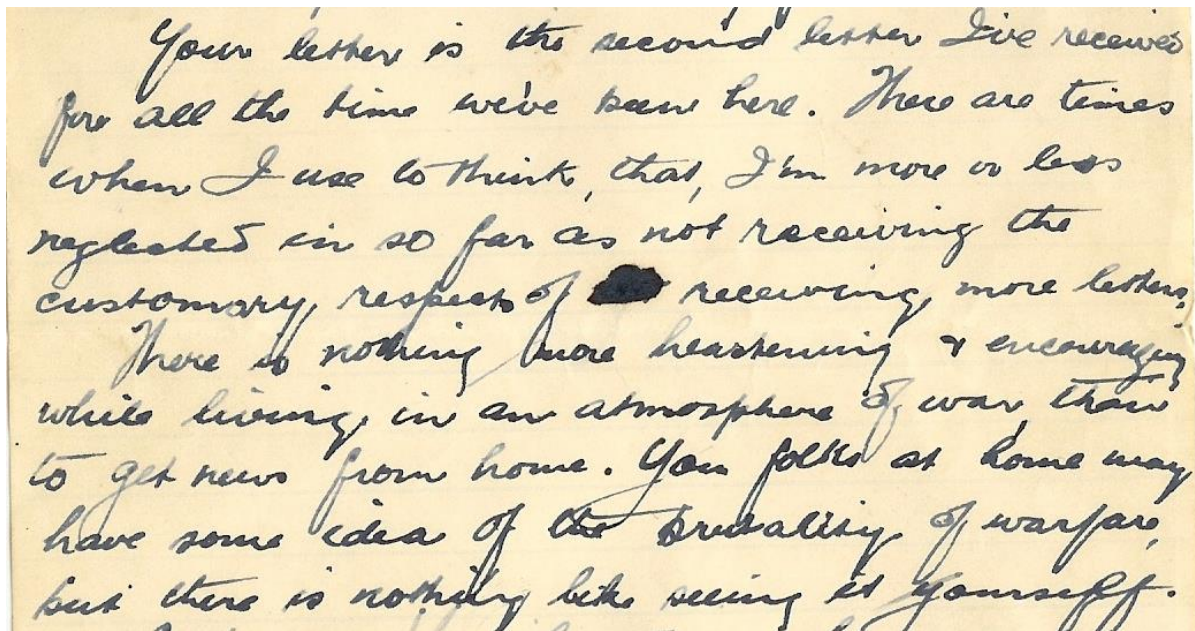 Your letter is the second letter I've received
for all the time we've been here. There are times
when I use to think, that, I'm more or less
neglected in so far as not receiving the
customary, respects of receiving, more letters.
There is nothing more heartening & encouraging
while living, in an atmosphere of war, than
to get news from home. You folks at home may
have some idea of the brutality of warfare,
but there is nothing like seeing it yourself.